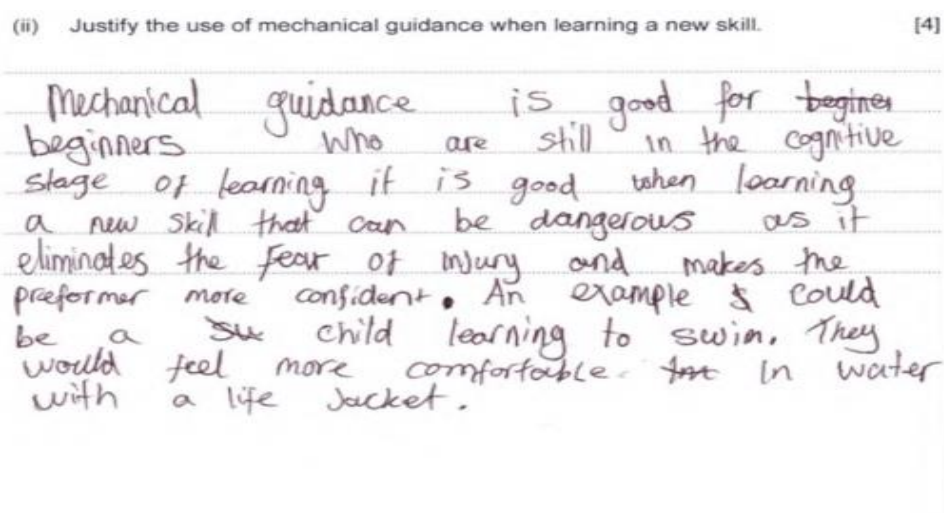 (ii) Justify the use of mechanical guidance when learning a new skill. [4]
Mechanical guidance is good for beginer
beginners who are still in the cognitive
stage of learning it is good when learning
a new skill that can be dangerous as it
eliminates the fear of injury and makes the
preformer more confident. An example could
be a su child learning to swim. They
would feel more comfortable in water
with a life jacket.